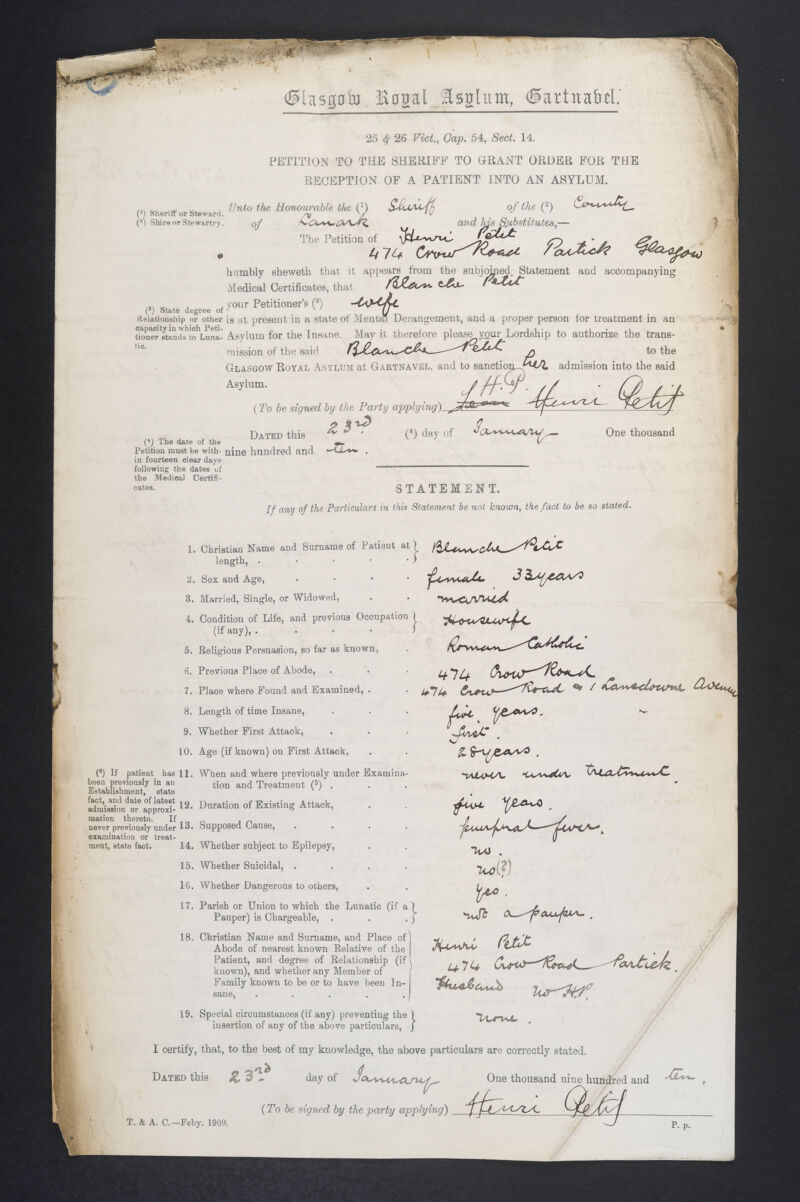 Glasgow Royal Asylum, Gartnavel.
25 & 26 Vict., Cap. 54, Sect. 14.
PETITION TO THE SHERIFF TO GRANT ORDER FOR THE
RECEPTION OF A PATIENT INTO AN ASYLUM.
(¹) Sheriff or Steward.
(²) Shire or Stewartry.
Unto the Honourable the (¹) Sheriff of the (²) County
of Lanark and his Substitutes,—
The Petition of Henri Petit
474 Crow Road Partick Glasgow
humbly sheweth that it appears from the subjoined Statement and accompanying
Medical Certificates, that Blanche Petit
(³) State degree of
Relationship or other
capacity in which Peti-
tioner stands to Luna-
tic.
your Petitioner's (³) wife
is at present in a state of Mental Derangement, and a proper person for treatment in an
Asylum for the Insane. May it therefore please your Lordship to authorize the trans-
mission of the said Blanche Petit to the
GLASGOW ROYAL ASYLUM AT GARTNAVEL, and to sanction her admission into the said
Asylum.
H.P.
(To be signed by the Party applying) Henri Petit
(⁴) The date of the
Petition must be with-
in fourteen clear days
following the dates of
the Medical Certifi-
cates.
DATED this 23rd (⁴) day of January One thousand
nine hundred and ten.
STATEMENT.
If any of the Particulars in this Statement be not known, the fact to be so stated.
1. Christian Name and Surname of Patient at
length, . . . . . } Blanche Petit
2. Sex and Age, . . . . female 33 years
3. Married, Single, or Widowed, . . married
4. Condition of Life, and previous Occupation
(if any), . . . . . } Housewife
5. Religious Persuasion, so far as known, . Roman Catholic
6. Previous Place of Abode, . . . 474 Crow Road
7. Place where Found and Examined, . . 474 Crow Road & 1 Lansdowne Avenue
8. Length of time Insane, . . . five years.
9. Whether First Attack, . . . first.
10. Age (if known) on First Attack, . . 28 years.
(⁵) If patient has
been previously in an
Establishment, state
fact, and date of latest
admission or approxi-
mation thereto. If
never previously under
examination or treat-
ment, state fact.
11. When and where previously under Examina-
tion and Treatment (⁵) . . . never under treatment.
12. Duration of Existing Attack, . . five years.
13. Supposed Cause, . . . . puerperal fever.
14. Whether subject to Epilepsy, . . no.
15. Whether Suicidal, . . . . no (?)
16. Whether Dangerous to others, . . yes.
17. Parish or Union to which the Lunatic (if a
Pauper) is Chargeable, . . . } not a pauper.
18. Christian Name and Surname, and Place of
Abode of nearest known Relative of the
Patient, and degree of Relationship (if
known), and whether any Member of
Family known to be or to have been In-
sane, . . . . . . }
Henri Petit
474 Crow Road Partick.
Husband no H.P.
19. Special circumstances (if any) preventing the
insertion of any of the above particulars, } none.
I certify, that, to the best of my knowledge, the above particulars are correctly stated.
DATED this 23rd day of January One thousand nine hundred and ten.
(To be signed by the party applying) Henri Petit
T. & A. C.—Feby. 1909.
P. p.